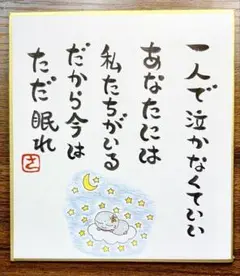 一人で泣かなくていい
あなたには
私たちがいる
だから今は
ただ眠れ
さ